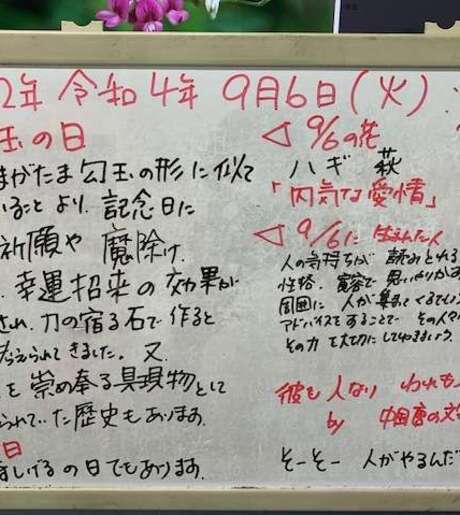 2年 令和4年 9月6日(火)
玉の日
まがたま 勾玉の形に似て
いることより、記念日に
祈願や 魔除け、
幸運招来の効果が
され、力の宿る石で作ると
考えられてきました。又、
を 崇め奉る具現物として
られていた歴史もあります。
日
の日でもあります。
◁ 9/6の花
ハギ 萩
「内気な愛情」
◁ 9/6に 生まれた人
人の気持ちが 読みとれる
性格。寛容で 思いやりがあ
周囲に 人が集まってくるでし
アドバイスをすることで その人や
その力を大切にして
彼も人なり われも人
by 中国唐の文
そーそー 人がやるんだ